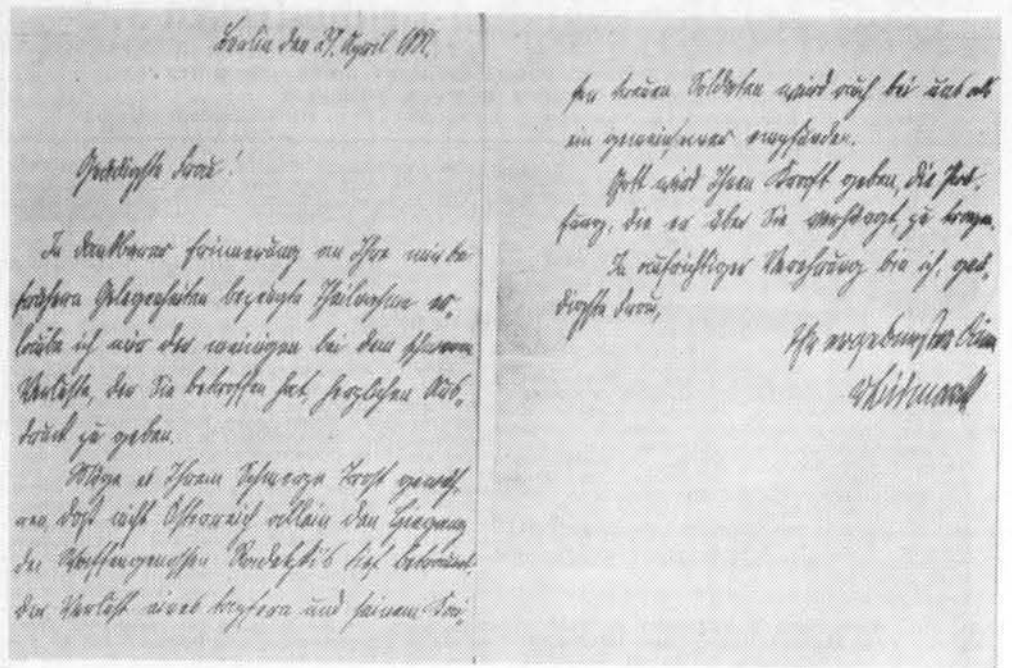 Berlin den April 1881.
Gnädigste Frau!
In dankbarer Erinnerung an Ihre mir bei
frühern Gelegenheiten bezeugte Theilnahme er-
laube ich mir der meinigen bei dem schweren
Verluste, der Sie betroffen hat, herzlichen Aus-
druck zu geben.
Möge es Ihrem Schmerze Trost gewäh-
ren, daß nicht Österreich allein den Heimgang
des Waffengenossen Radetzki's tief betrauert.
Der Verlust eines tapfern und seinem Kai-
ser treuen Soldaten wird auch bei uns als
ein gemeinsamer empfunden.
Gott wird Ihnen Kraft geben, die Prü-
fung, die er über Sie verhängt, zu tragen.
In aufrichtiger Verehrung bin ich, gnä-
digste Frau,
Ihr ergebenster Diener
vBismarck